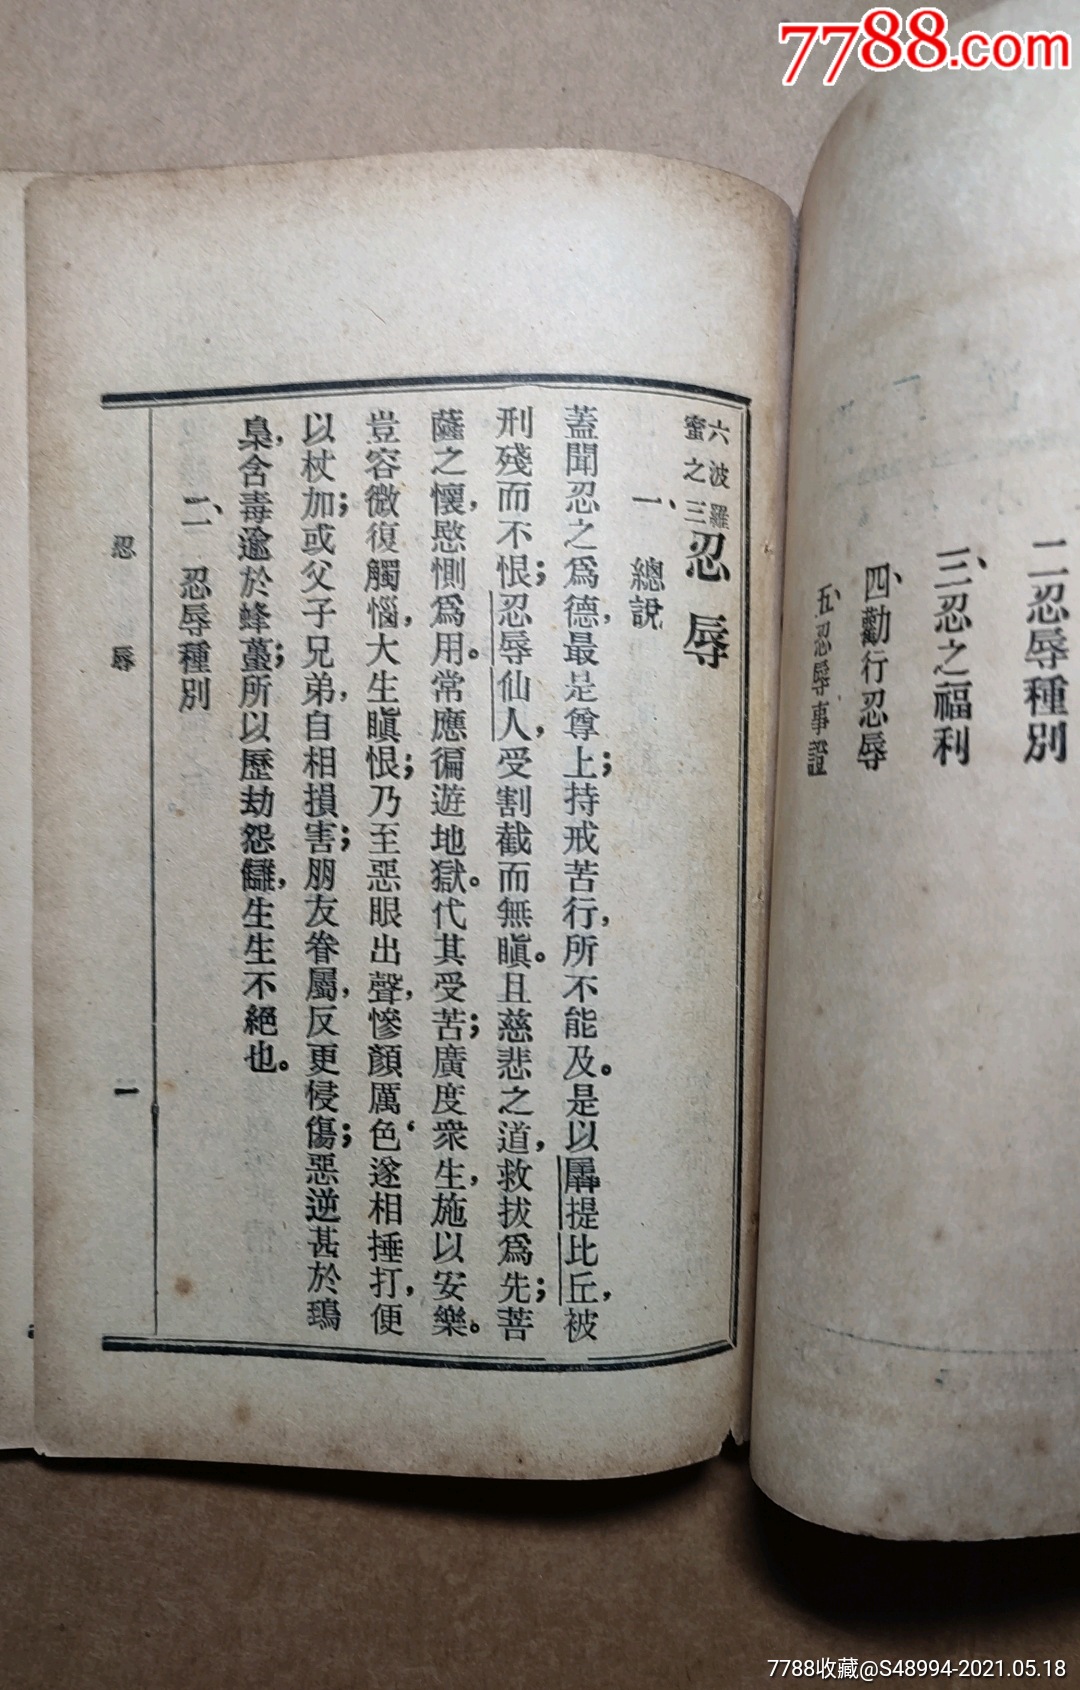 7788.com
二忍辱種別
三、忍之福利
四、勸行忍辱
五、忍辱事證
六波羅蜜之三 忍辱
一、總說
蓋聞忍之爲德，最是尊上；持戒苦行，所不能及。是以羼提比丘，被
刑殘而不恨；忍辱仙人，受割截而無瞋。且慈悲之道，救拔爲先；菩
薩之懷，愍惻爲用。常應徧遊地獄。代其受苦；廣度衆生，施以安樂。
豈容微復觸惱，大生瞋恨；乃至惡眼出聲，慘顏厲色‘遂相捶打，便
以杖加；或父子兄弟，自相損害；朋友眷屬，反更侵傷；惡逆甚於鴟
梟，含毒逾於蜂蠆；所以歷劫怨讎，生生不絕也。
二、忍辱種別
忍辱 一
7788收藏@S48994-2021.05.18